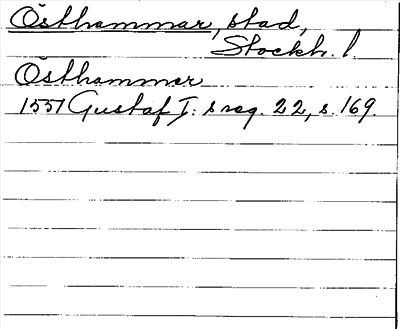 Östhammar, stad,
Stockh. l.
Östhammer
1551 Gustaf I: s reg. 22, s. 169.